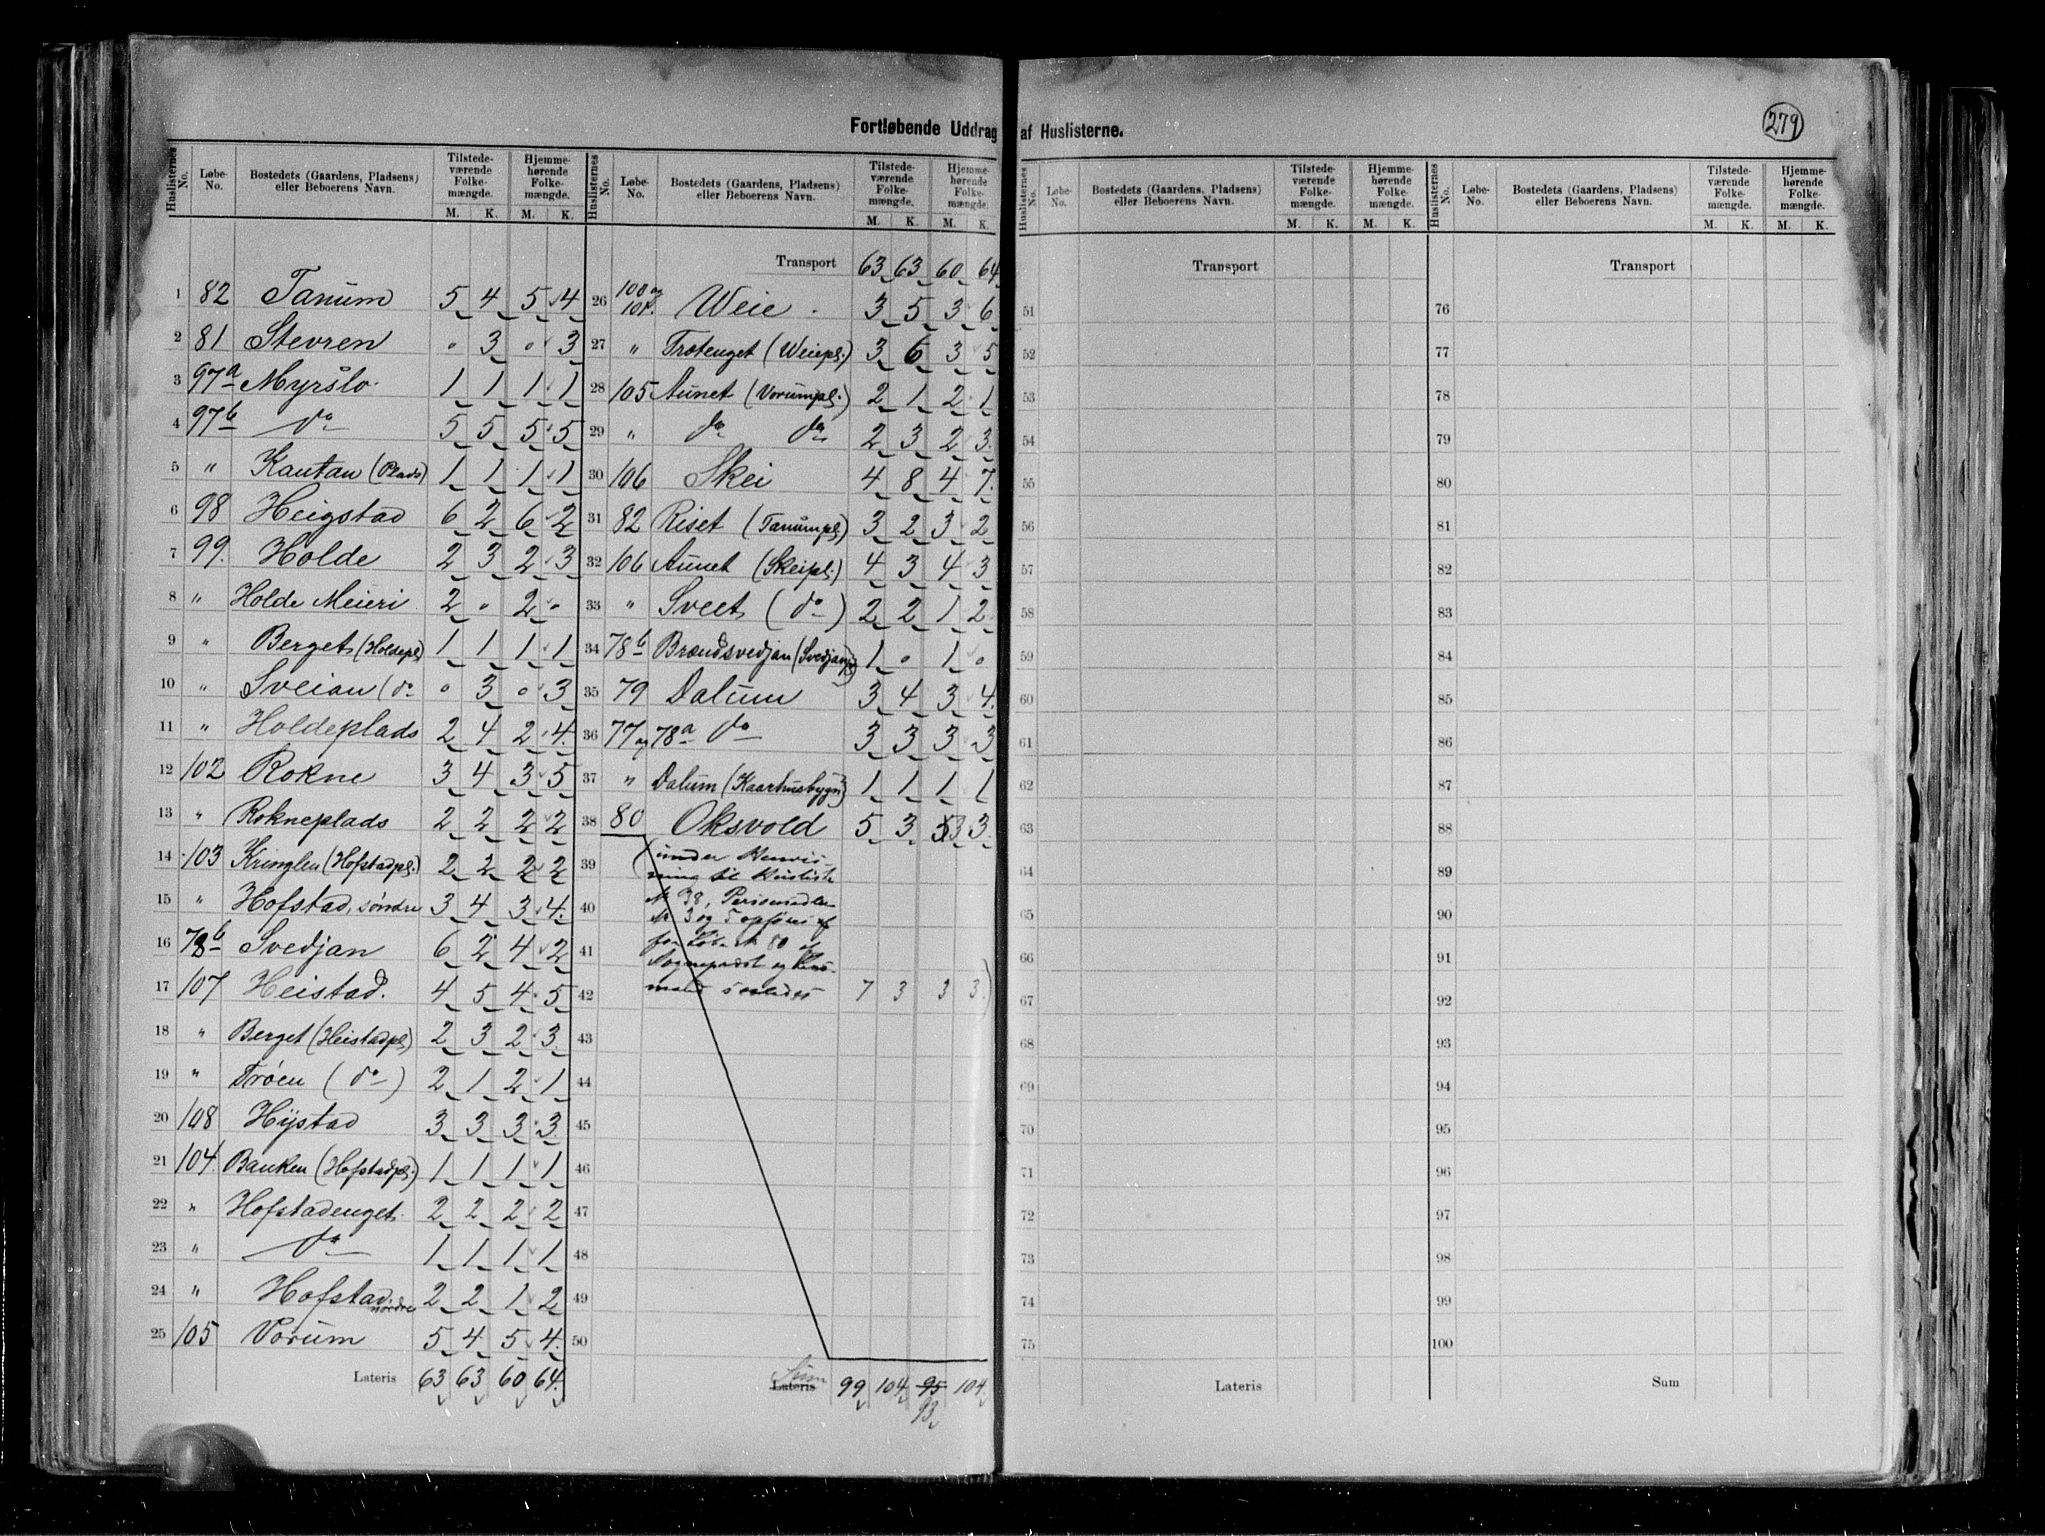 Fortløbende Uddrag af Huslisterne.
279
Huslisternes No. | Løbe-No. | Bostedets (Gaardens, Pladsens) eller Beboerens Navn. | Tilstedeværende Folkemængde. M. K. | Hjemmehørende Folkemængde. M. K.
1 82 Tanum 5 4 5 4
2 81 Stevren 0 3 0 3
3 97a Myrslo 1 1 1 1
4 97b do 5 5 5 5
5 " Kantan (Plads) 1 1 1 1
6 98 Heigstad 6 2 6 2
7 99. Holde 2 3 2 3
8 " Holde Meieri 2 0 2 0
9 " Berget (Holdepl.) 1 1 1 1
10 " Sveian (do 0 3 0 3
11 " Holdeplads 2 4 2 4.
12 102 Rokne 3 4 3 5
13 " Rokneplads 2 2 2 2
14 103 Kringlen (Hofstadpl.) 2 2 2 2
15 " Hofstad, söndre 3 4 3 4.
16 78b Svedjan 6 2 4 2
17 107 Heistad. 4 5 4 5
18 " Berget (Heistadpl.) 2 3 2 3.
19 " Trøen (do) 2 1 2 1
20 108 Hÿstad 3 3 3 3.
21 104. Banken (Hofstadpl.) 1 1 1 1
22 " Hofstadenget. 2 2 2 2
23 " do 1 1 1 1
24 " Hofstad. nordre 2 2 1 2
25 105 Vorum 5 4 5 4.
Lateris 63 63 60 64.
Huslisternes No. | Løbe-No. | Bostedets (Gaardens, Pladsens) eller Beboerens Navn. | Tilstedeværende Folkemængde. M. K. | Hjemmehørende Folkemængde. M. K.
Transport 63 63 60 64
26 100 og 101. Weie. 3 5 3 6
27 " Trøtenget (Weiepl.) 3 6 3 5
28 105 Aunet (Vorumpl.) 2 1 2 1
29 " do do 2 3 2 3.
30 106 Skei 4 8 4 7.
31 82 Riset (Tanumpl.) 3 2 3 2
32 106 Aunet (Skeipl.) 4 3 4 3
33 " Sveet (do) 2 2 1 2
34 78b Brændsvedjan (Svedjanpl.) 1 0 1 0
35 79 Dalum 3 4 3 4.
36 77 og 78a do 3 3 3 3
37 " Dalum (Kaarhusbygn.) 1 1 1 1
38 80 Oksvold 5 3 5 3 3.
39 (under Henvis-
ning til Husliste
40 N 38, Personsedler
N 3 og 5 opføres
41 for Løbe N 80 af
Sogneprest og
42 saaledes 7 3 3 3)
43
44
45
46
47
48
49
50
Sum Lateris 99 104 95 104.
93
Huslisternes No. | Løbe-No. | Bostedets (Gaardens, Pladsens) eller Beboerens Navn. | Tilstedeværende Folkemængde. M. K. | Hjemmehørende Folkemængde. M. K.
Transport
51
52
53
54
55
56
57
58
59
60
61
62
63
64
65
66
67
68
69
70
71
72
73
74
75
Lateris
Huslisternes No. | Løbe-No. | Bostedets (Gaardens, Pladsens) eller Beboerens Navn. | Tilstedeværende Folkemængde. M. K. | Hjemmehørende Folkemængde. M. K.
Transport
76
77
78
79
80
81
82
83
84
85
86
87
88
89
90
91
92
93
94
95
96
97
98
99
100
Sum